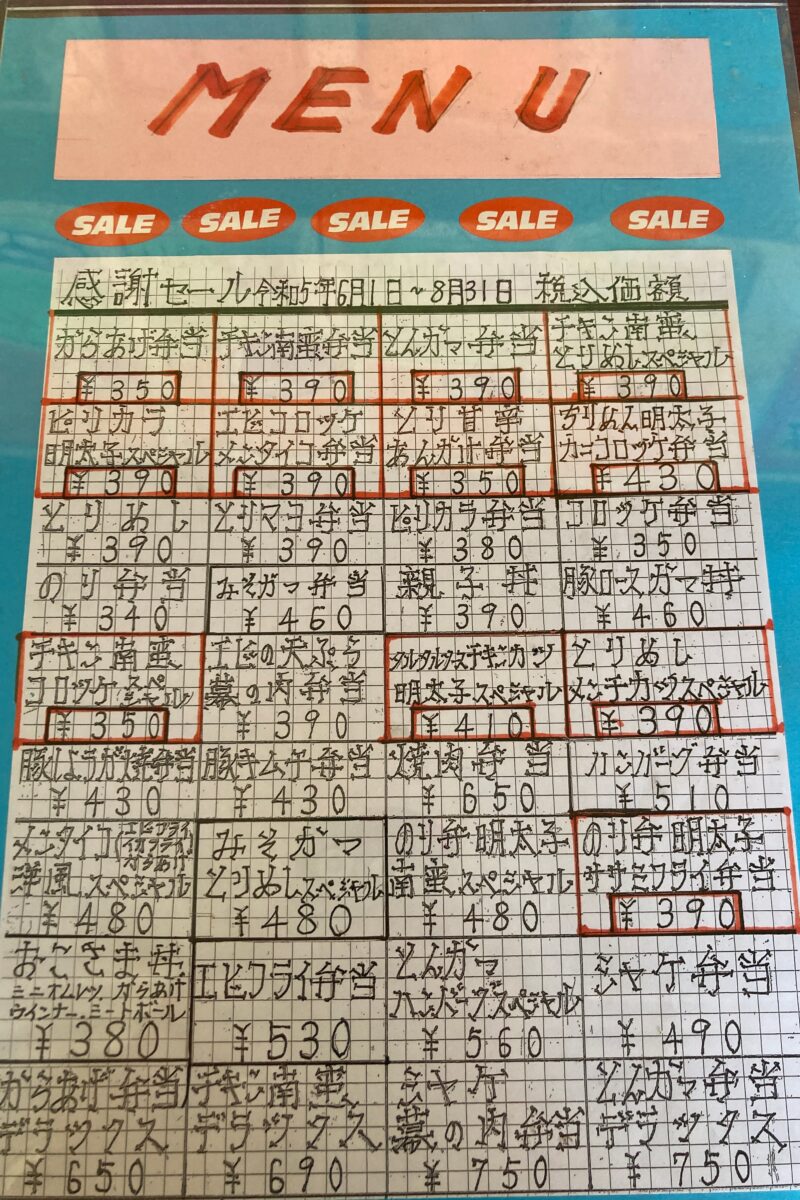 MENU
SALE SALE SALE SALE SALE
感謝セール 令和5年6月1日～8月31日 税込価額
からあげ弁当
¥350
チキン南蛮弁当
¥390
とんカツ弁当
¥390
チキン南蛮
とりめしスペシャル
¥390
ピリカラ
明太子スペシャル
¥390
エビコロッケ
メンタイコ弁当
¥390
とり甘辛
あんかけ弁当
¥350
ちりめん明太子
カニコロッケ弁当
¥430
とりめし
¥390
とりマヨ弁当
¥390
ピリカラ弁当
¥380
コロッケ弁当
¥350
のり弁当
¥340
みそカツ弁当
¥460
親子丼
¥390
豚ロースカツ丼
¥460
チキン南蛮
コロッケスペシャル
¥350
エビの天ぷら
幕の内弁当
¥390
タルタルソースチキンカツ
明太子スペシャル
¥410
とりめし
メンチカツスペシャル
¥390
豚しょうが焼弁当
¥430
豚キムチ弁当
¥430
焼肉弁当
¥650
ハンバーグ弁当
¥510
メンタイコ
エビフライ
イカフライ
からあげ
洋風スペシャル
¥480
みそカツ
とりめしスペシャル
¥480
のり弁明太子
南蛮スペシャル
¥480
のり弁明太子
ササミフライ弁当
¥390
おこさま丼
ミニオムレツ.からあげ
ウインナー.ミートボール
¥380
エビフライ弁当
¥530
とんカツ
ハンバーグスペシャル
¥560
シャケ弁当
¥490
からあげ弁当
デラックス
¥650
チキン南蛮
デラックス
¥690
シャケ
幕の内弁当
¥750
とんカツ弁当
デラックス
¥750